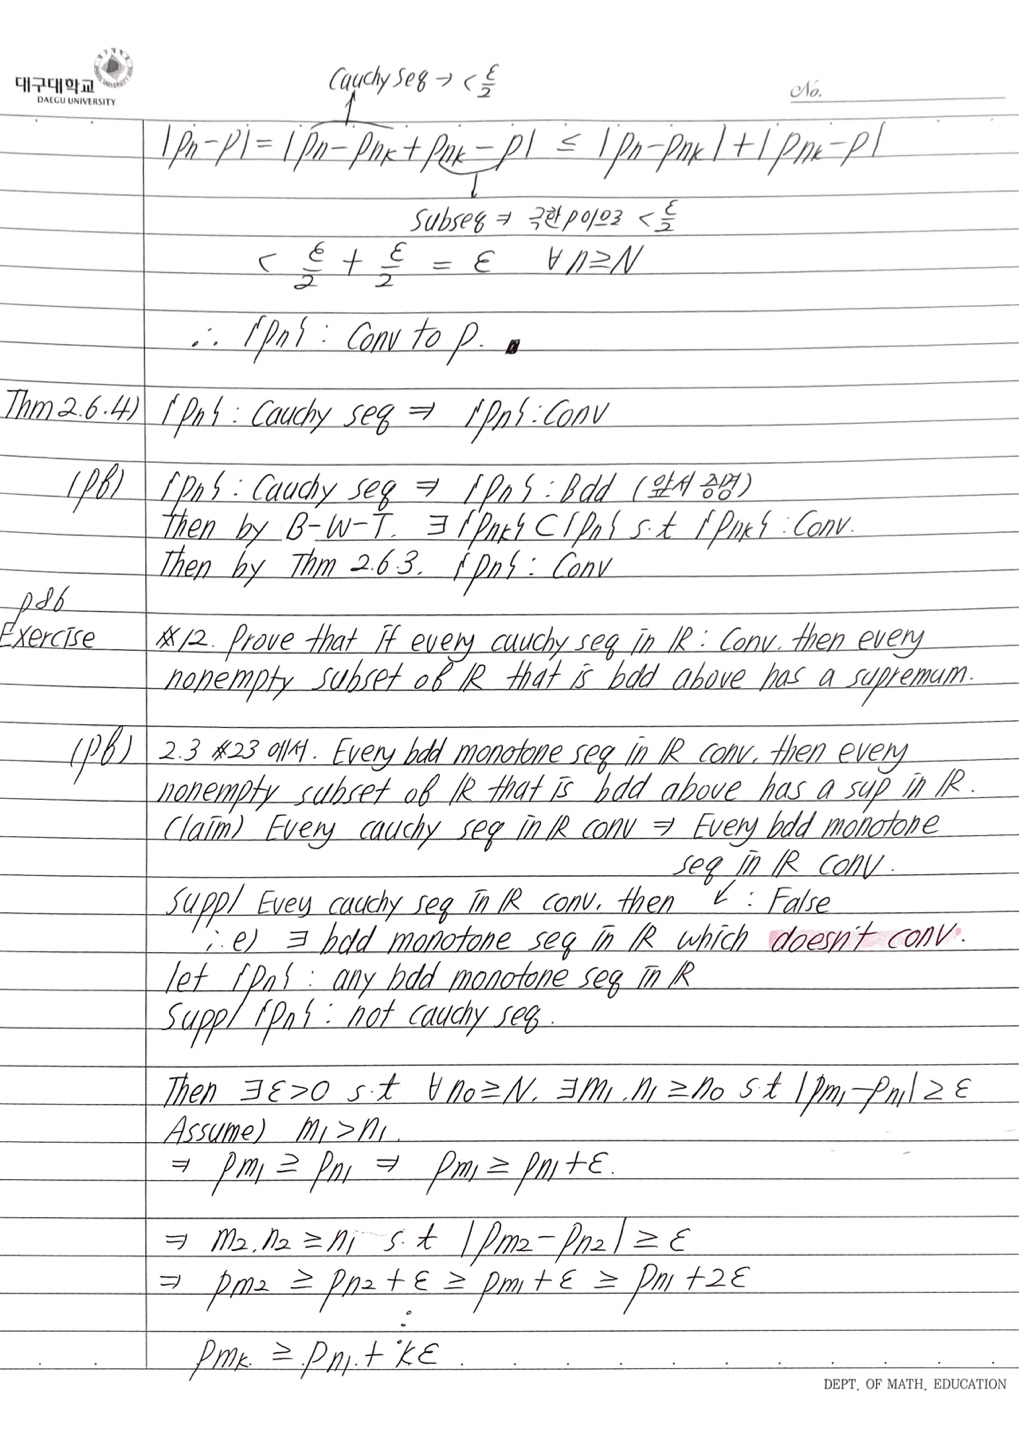 대구대학교
DAEGU UNIVERSITY
No.
Cauchy seq → < ε/2
|pn-p| = |pn-pnk+pnk-p| ≤ |pn-pnk|+|pnk-p|
Subseq ⇒ 극한 p이므로 < ε/2
< ε/2 + ε/2 = ε ∀n≥N
∴ {pn} : Conv to p.
Thm 2.6.4) {pn} : Cauchy seq ⇒ {pn} : Conv
(pf) {pn} : Cauchy seq ⇒ {pn} : Bdd (앞서 증명)
Then by B-W-T. ∃{pnk}⊂{pn} s.t {pnk} : Conv.
Then by Thm 2.6.3. {pn} : Conv
p86
Exercise #12. Prove that if every cauchy seq in ℝ : Conv. then every
nonempty subset of ℝ that is bdd above has a supremum.
(pf) 2.3 #23 에서. Every bdd monotone seq in ℝ conv, then every
nonempty subset of ℝ that is bdd above has a sup in ℝ.
Claim) Every cauchy seq in ℝ conv ⇒ Every bdd monotone
seq in ℝ conv.
Supp/ Evey cauchy seq in ℝ conv. then ↙ : False
i.e) ∃ bdd monotone seq in ℝ which doesn't conv.
let {pn} : any bdd monotone seq in ℝ
Supp/ {pn} : not cauchy seq.
Then ∃ε>0 s.t ∀n0≥N. ∃m1.n1≥n0 s.t |pm1-pn1|≥ε
Assume) m1>n1.
⇒ pm1 ≥ pn1 ⇒ pm1 ≥ pn1+ε.
⇒ m2.n2 ≥ n1 s.t |pm2-pn2|≥ε
⇒ pm2 ≥ pn2+ε ≥ pm1+ε ≥ pn1+2ε
⋮
pmk ≥ pn1+kε
DEPT. OF MATH. EDUCATION